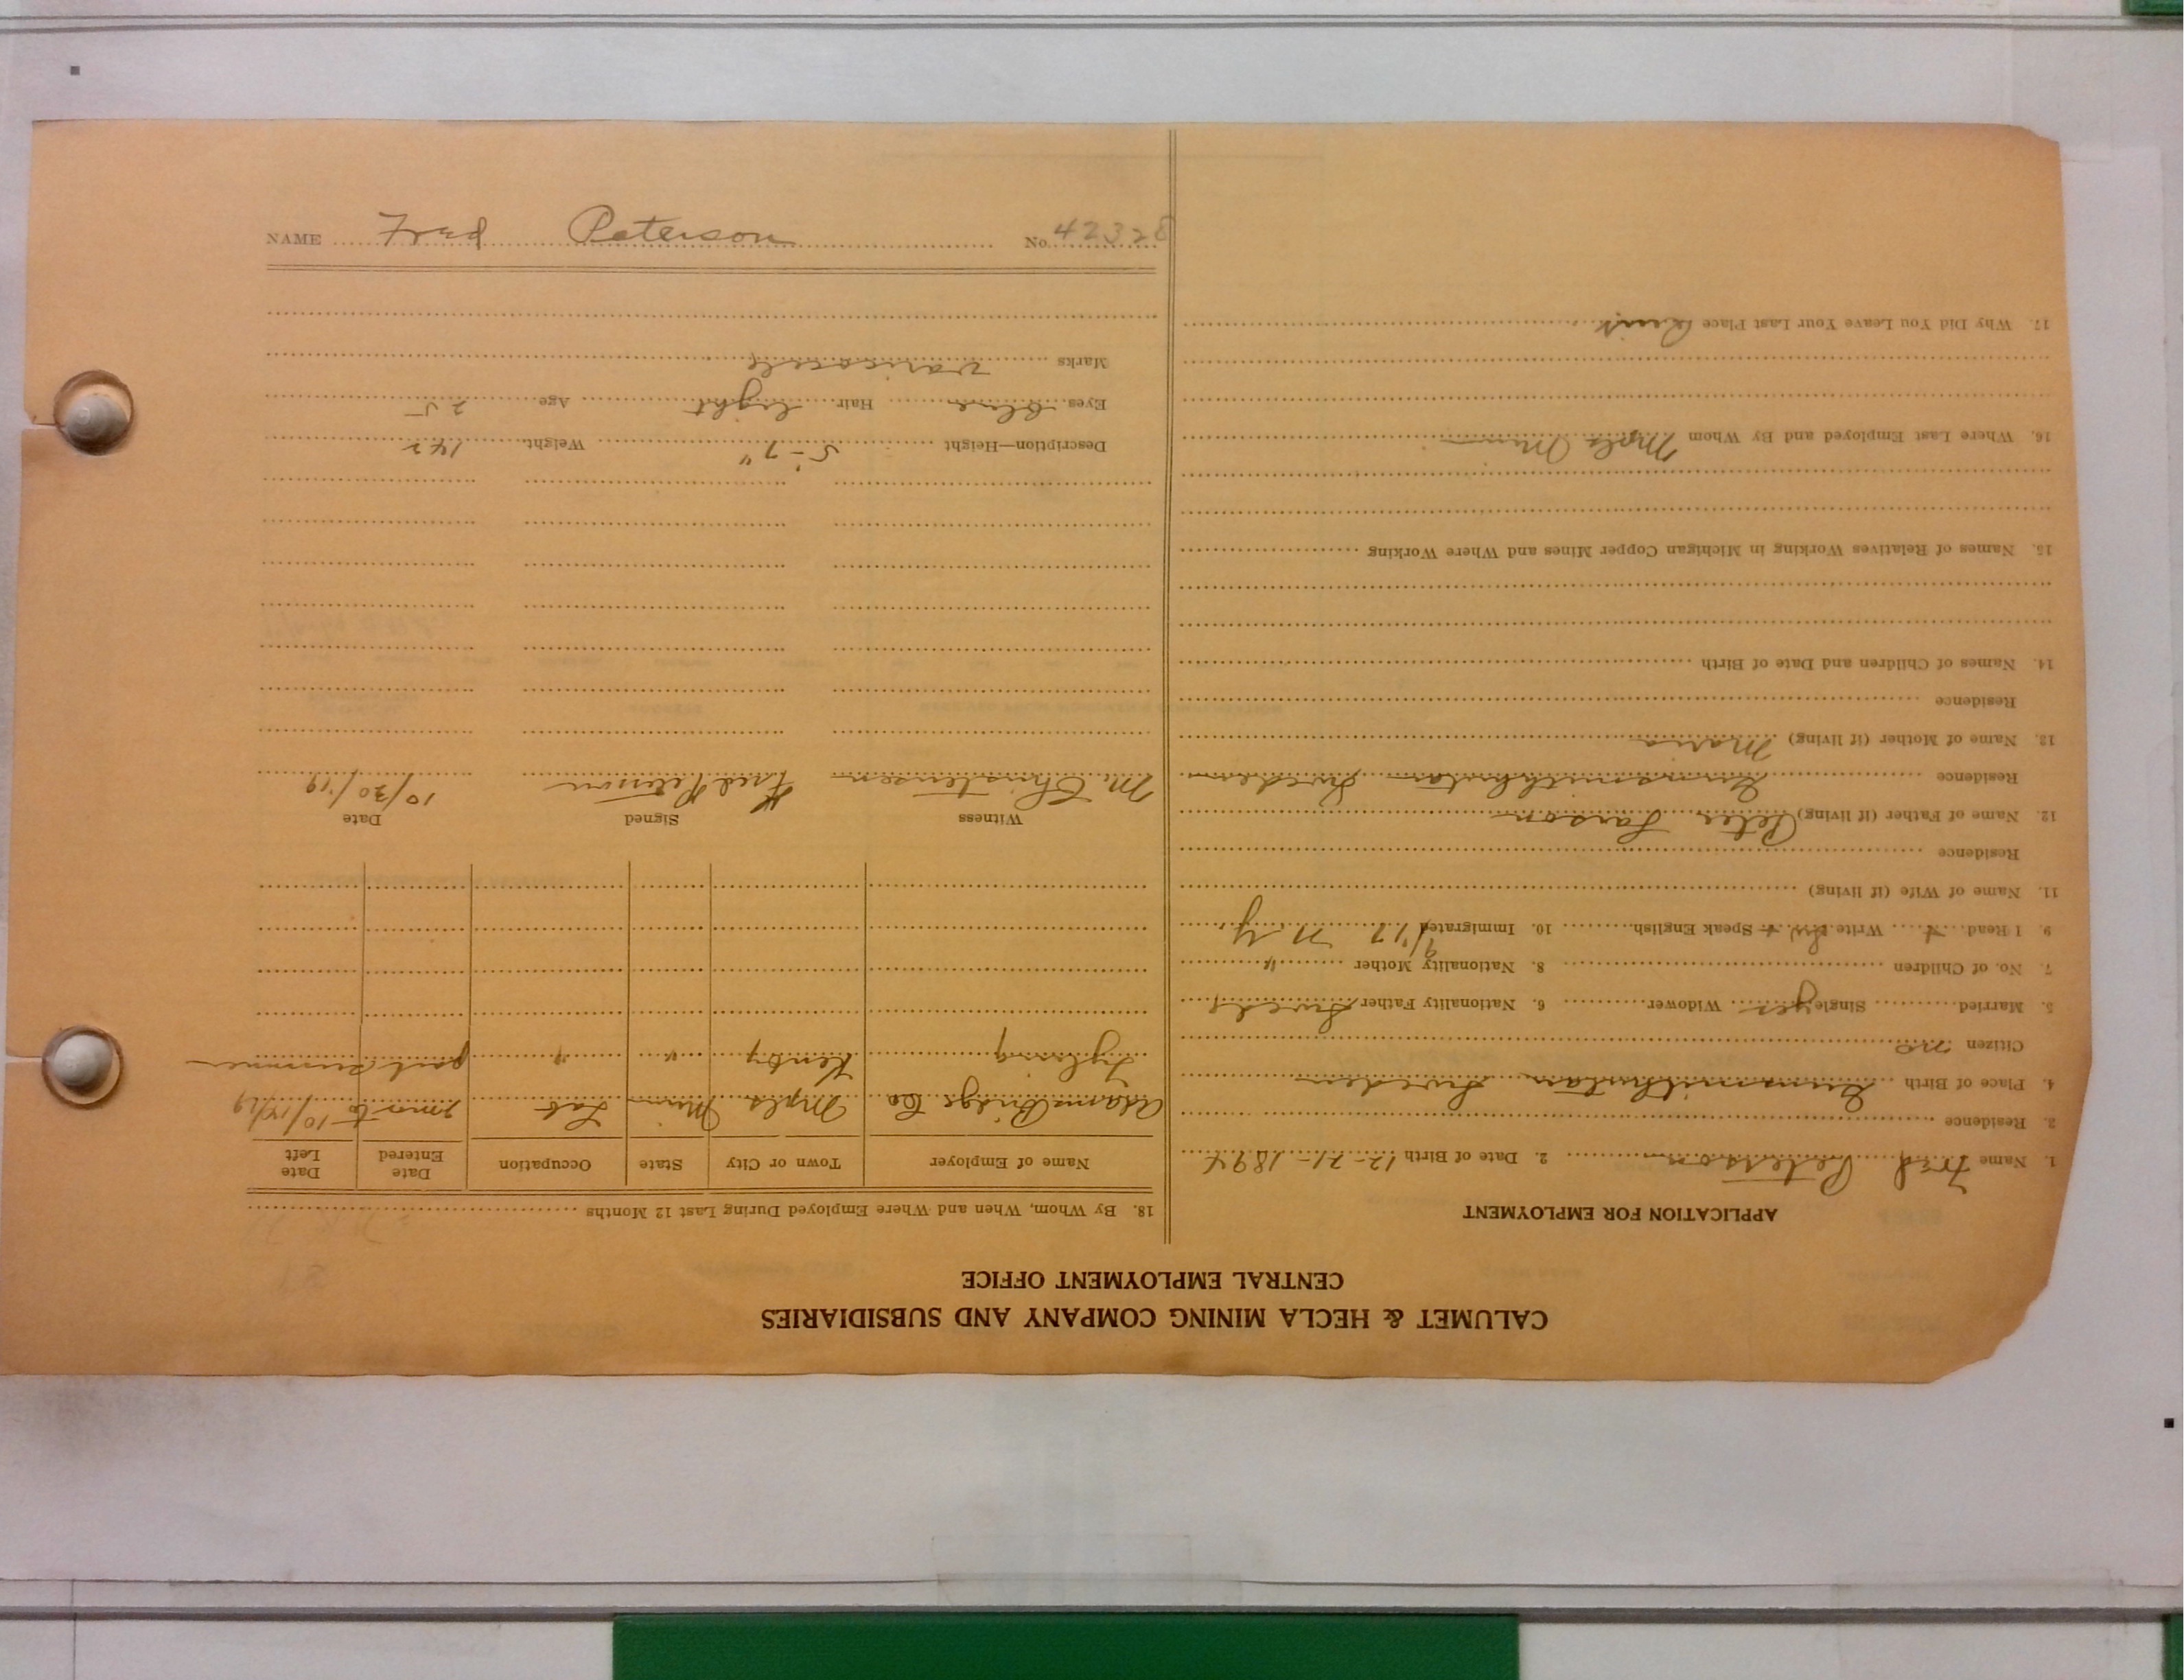 CALUMET & HECLA MINING COMPANY AND SUBSIDIARIES
CENTRAL EMPLOYMENT OFFICE
APPLICATION FOR EMPLOYMENT
1. Name Fred Peterson 2. Date of Birth 12-21-1894
3. Residence
4. Place of Birth Sweden
Citizen no
5. Married Single yes Widower 6. Nationality Father Swede
7. No. of Children 8. Nationality Mother "
9. I Read Write Sw. Speak English 10. Immigrated 9/17 N.Y
11. Name of Wife (if living)
Residence
12. Name of Father (if living) Peter Larson
Residence Sweden
13. Name of Mother (if living) Maria
Residence
14. Names of Children and Date of Birth
15. Names of Relatives Working in Michigan Copper Mines and Where Working
16. Where Last Employed and By Whom Mpls Minn
17. Why Did You Leave Your Last Place Quit
18. By Whom, When and Where Employed During Last 12 Months
Name of Employer Town or City State Occupation Date Entered Date Left
Adams Bridge Co Mpls Minn Lab to 10/15/19
" " past summer
Witness Signed Date
M. Christensen Fred Peterson 10/30/19
Description—Height 5-7" Weight 142
Eyes blue Hair light Age 25
Marks varicocele
NAME Fred Peterson No. 42328